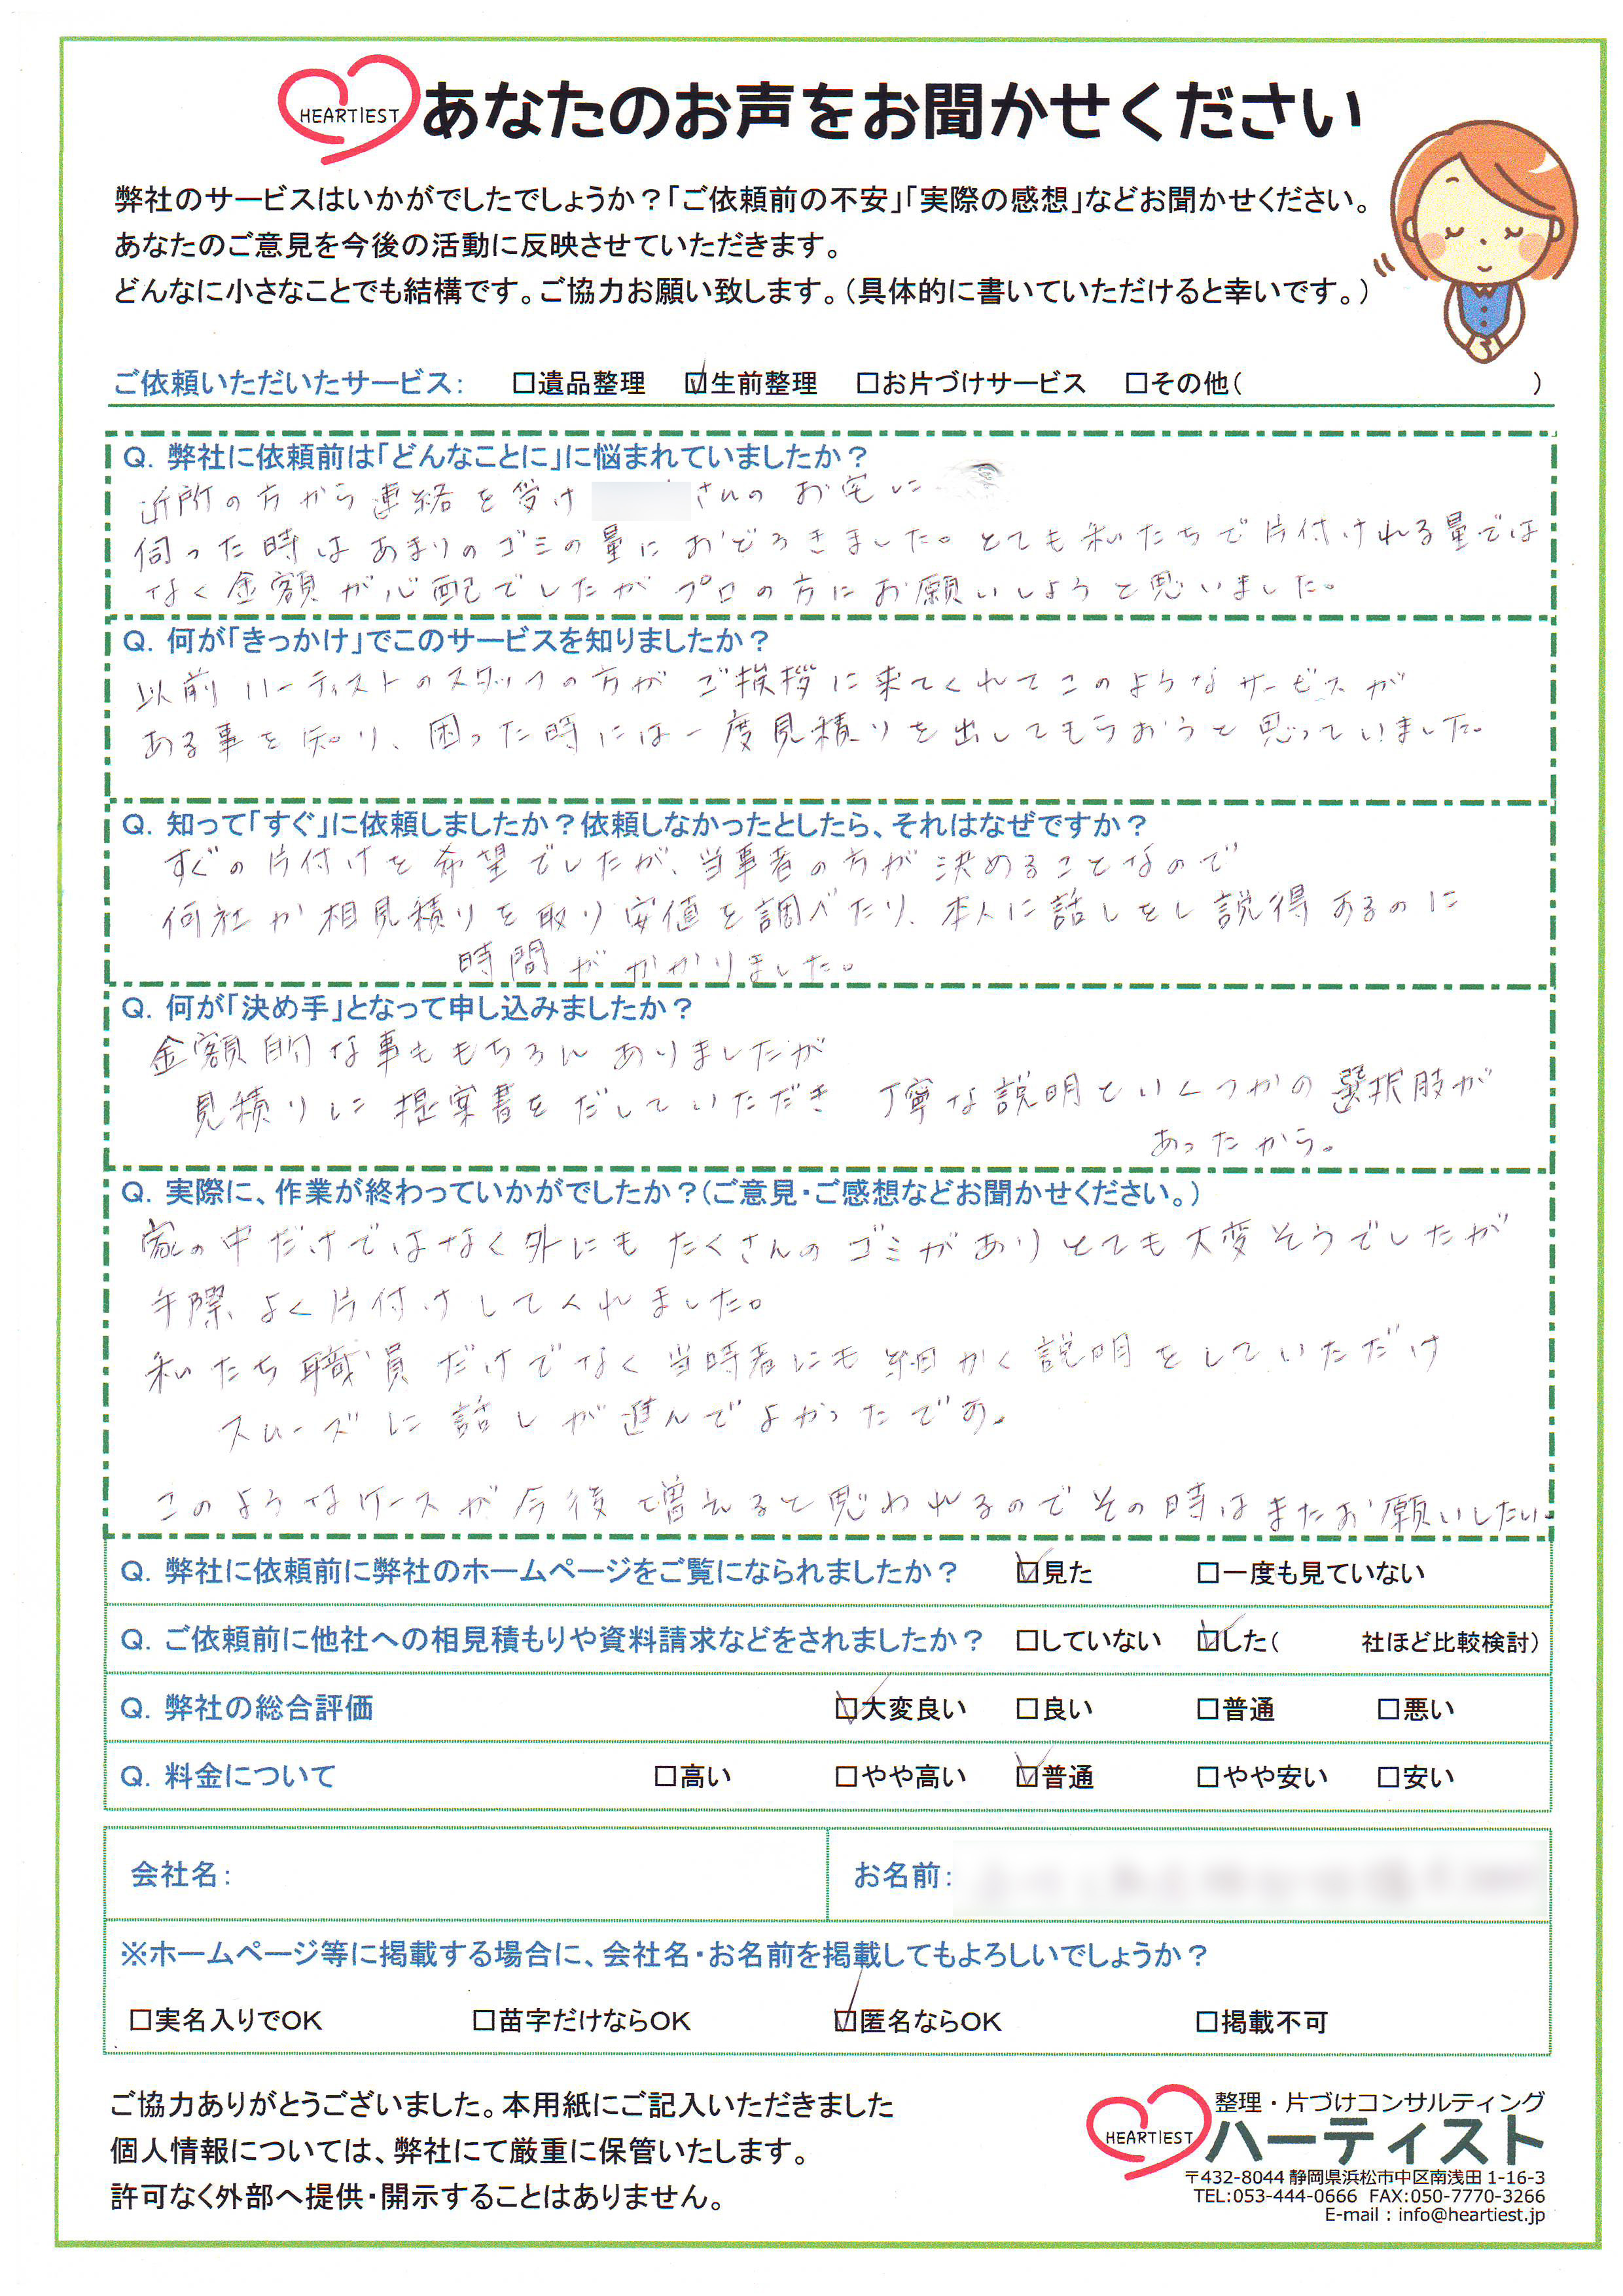 HEARTIEST あなたのお声をお聞かせください
弊社のサービスはいかがでしたでしょうか?「ご依頼前の不安」「実際の感想」などお聞かせください。
あなたのご意見を今後の活動に反映させていただきます。
どんなに小さなことでも結構です。ご協力お願い致します。(具体的に書いていただけると幸いです。)
ご依頼いただいたサービス: □遺品整理 ☑生前整理 □お片づけサービス □その他( )
Q. 弊社に依頼前は「どんなことに」に悩まれていましたか?
近所の方から連絡を受け さんのお宅に
伺った時はあまりのゴミの量におどろきました。とても私たちで片付けれる量では
なく金額が心配でしたがプロの方にお願いしようと思いました。
Q. 何が「きっかけ」でこのサービスを知りましたか?
以前ハーティストのスタッフの方がご挨拶に来てくれてこのようなサービスが
ある事を知り、困った時には一度見積りを出してもらおうと思っていました。
Q. 知って「すぐ」に依頼しましたか?依頼しなかったとしたら、それはなぜですか?
すぐの片付けを希望でしたが、当事者の方が決めることなので
何社か相見積りを取り安値を調べたり、本人に話しをし説得あるのに
時間がかかりました。
Q. 何が「決め手」となって申し込みましたか?
金額的な事ももちろんありましたが
見積りに提案書をだしていただき 丁寧な説明といくつかの選択肢が
あったから。
Q. 実際に、作業が終わっていかがでしたか?(ご意見・ご感想などお聞かせください。)
家の中だけではなく外にもたくさんのゴミがありとても大変そうでしたが
手際よく片付けしてくれました。
私たち職員だけでなく当時者にも細かく説明をしていただけ
スムーズに話しが進んでよかったです。
このようなケースが今後増えると思われるのでその時はまたお願いしたい。
Q. 弊社に依頼前に弊社のホームページをご覧になられましたか? ☑見た □一度も見ていない
Q. ご依頼前に他社への相見積もりや資料請求などをされましたか? □していない ☑した( 社ほど比較検討)
Q. 弊社の総合評価 ☑大変良い □良い □普通 □悪い
Q. 料金について □高い □やや高い ☑普通 □やや安い □安い
会社名: お名前:
※ホームページ等に掲載する場合に、会社名・お名前を掲載してもよろしいでしょうか?
□実名入りでOK □苗字だけならOK ☑匿名ならOK □掲載不可
ご協力ありがとうございました。本用紙にご記入いただきました
個人情報については、弊社にて厳重に保管いたします。
許可なく外部へ提供・開示することはありません。
整理・片づけコンサルティング
HEARTIEST ハーティスト
〒432-8044 静岡県浜松市中区南浅田 1-16-3
TEL:053-444-0666 FAX:050-7770-3266
E-mail : info@heartiest.jp